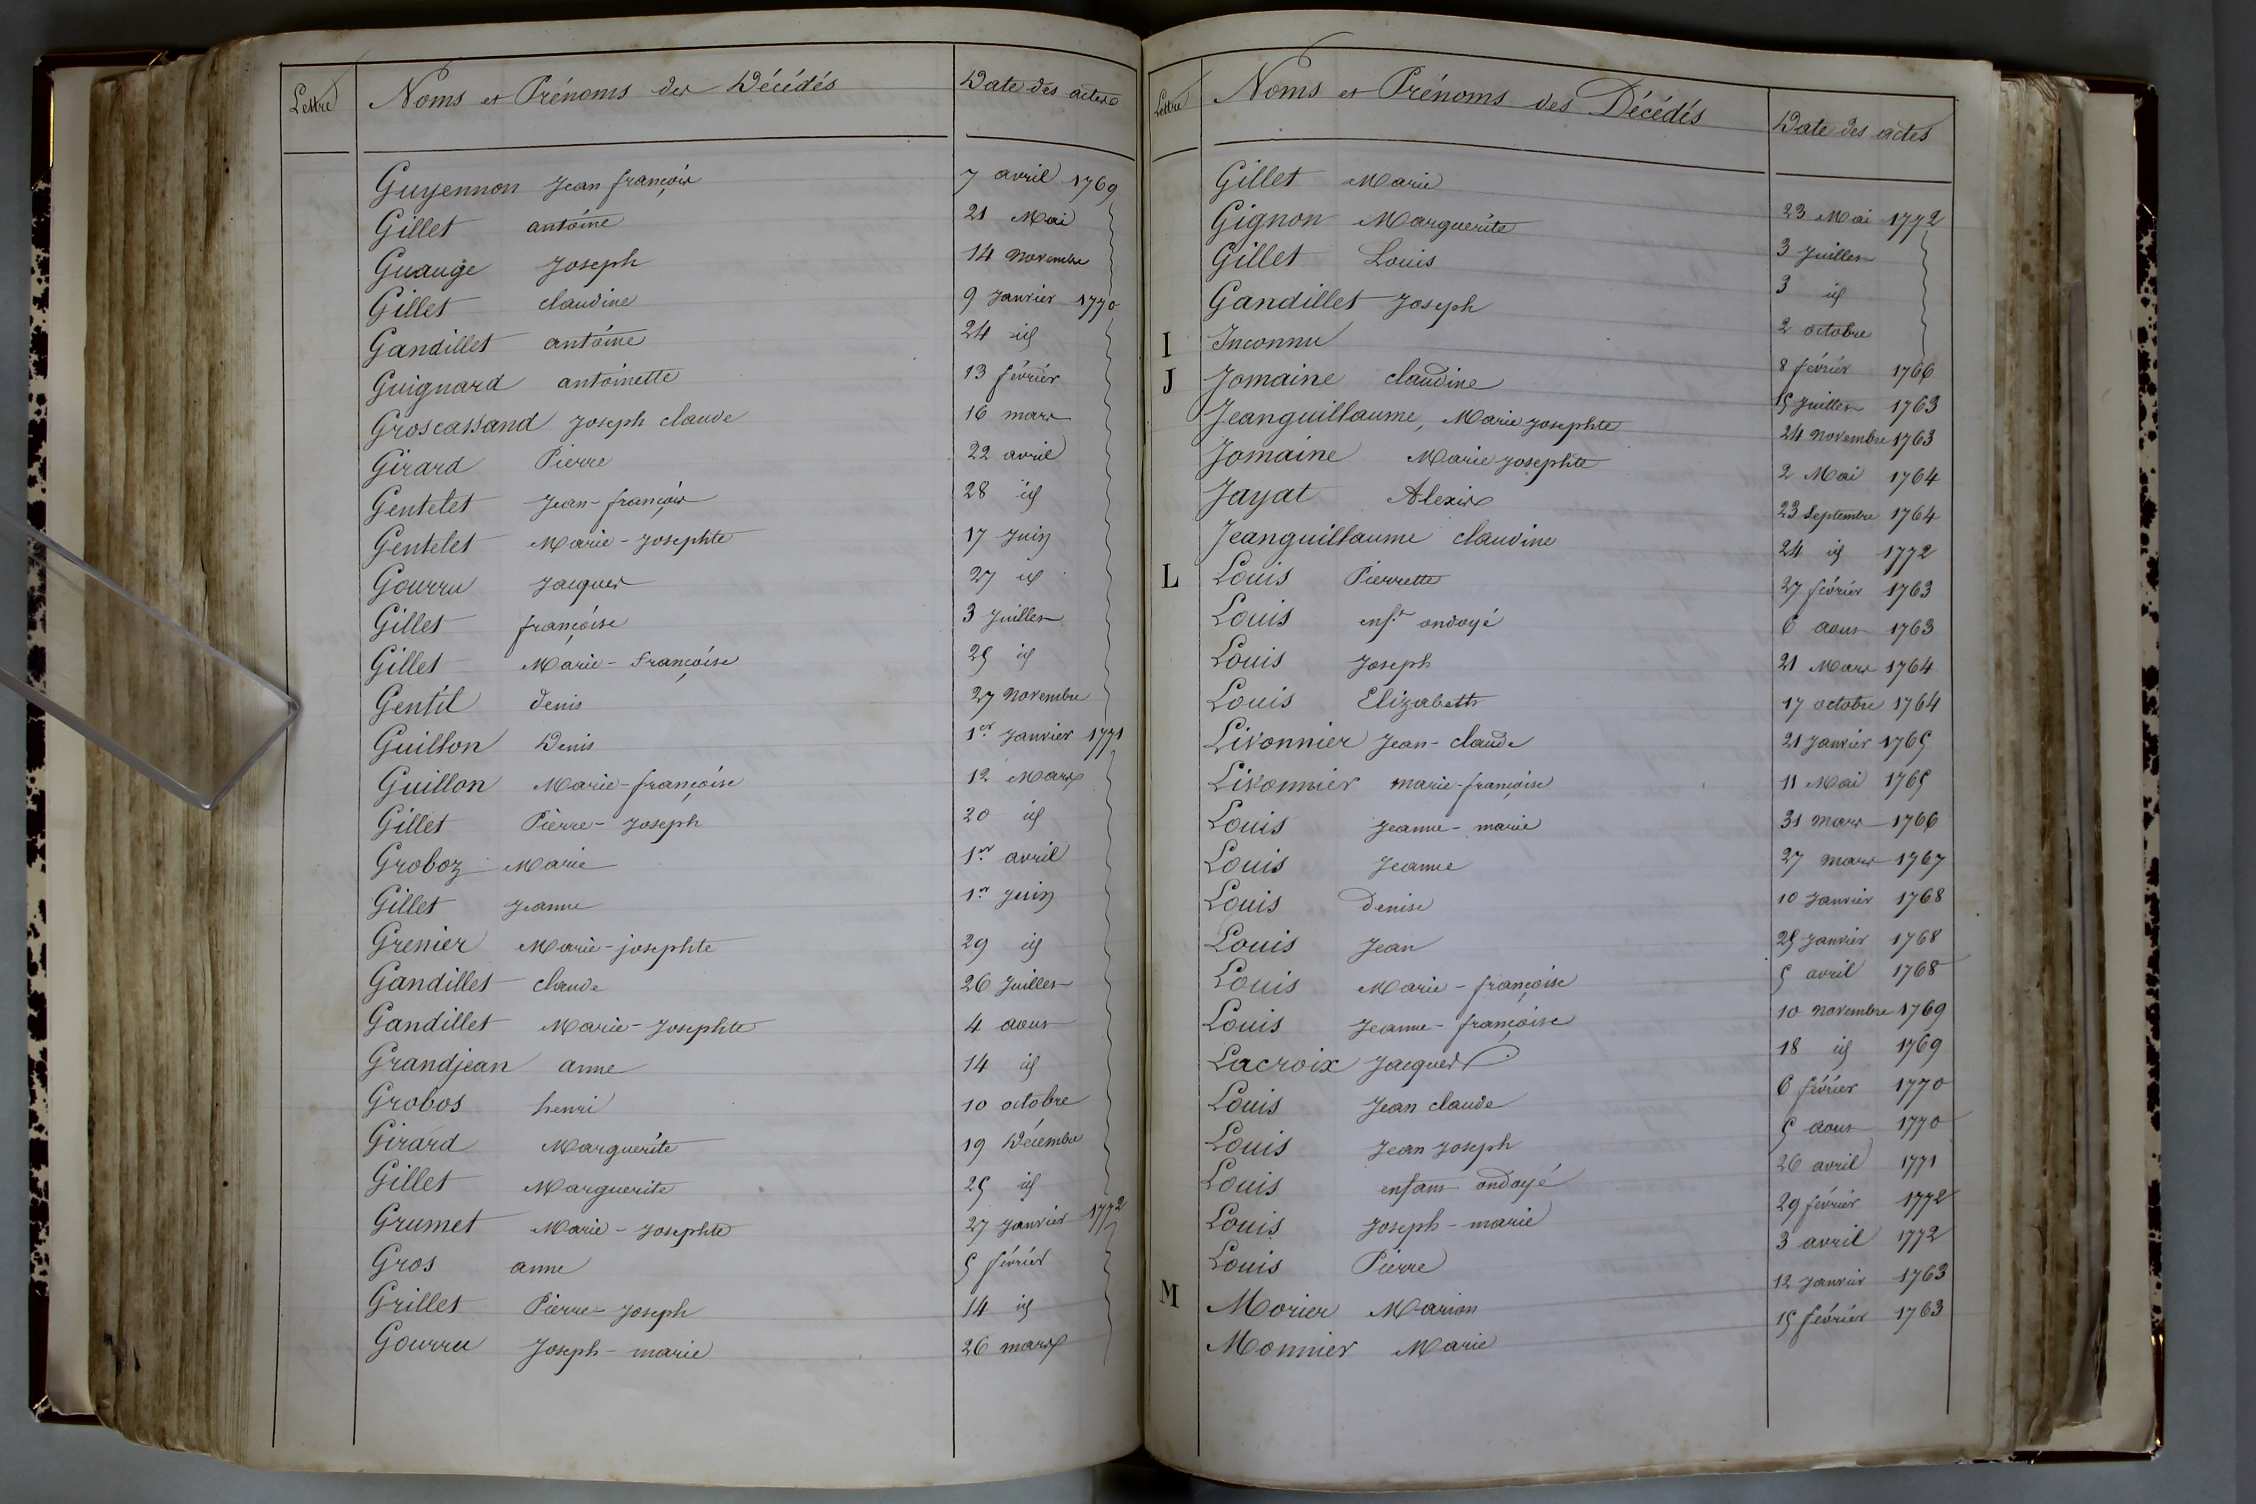 Lettre Noms et Prénoms des Décédés Date des actes
Guyennon Jean françois 7 avril 1769
Gillet antoine 21 Mai
Guauge Joseph 14 Novembre
Gillet claudine 9 Janvier 1770
Gandillet antoine 24 id
Guignard antoinette 13 février
Groscassand Joseph claude 16 mars
Girard Pierre 22 avril
Gentelet Jean-françois 28 id
Gentelet Marie-Josephte 17 Juin
Gourru Jacques 27 id
Gillet françoise 3 Juillet
Gillet Marie-françoise 25 id
Gentil denis 27 Novembre
Guillon Denis 1er Janvier 1771
Guillon Marie-françoise 12 Mars
Gillet Pierre-Joseph 20 id
Groboz Marie 1er avril
Gillet Jeanne 1er Juin
Grenier Marie-josephte 29 id
Gandillet claude 26 Juillet
Gandillet Marie-Josephte 4 aout
Grandjean anne 14 id
Grobos henri 10 octobre
Girard Marguerite 19 Décembre
Gillet Marguerite 25 id
Grumet Marie-Josephte 27 Janvier 1772
Gros anne 5 février
Grillet Pierre-Joseph 14 id
Gourru Joseph-marie 26 mars
Lettre Noms et Prénoms des Décédés Date des actes
Gillet Marie 23 Mai 1772
Gignon Marguerite 3 Juillet
Gillet Louis 3 id
Gandillet Joseph 2 octobre
I Inconnu 8 février 1766
J Jomaine claudine 15 Juillet 1763
Jeanguillaume, Marie Josephte 24 Novembre 1763
Jomaine Marie Josephte 2 Mai 1764
Jayat Alexis 23 Septembre 1764
Jeanguillaume claudine 24 id 1772
L Louis Pierrette 27 février 1763
Louis enft ondoyé 6 aout 1763
Louis Joseph 21 Mars 1764
Louis Elizabeth 17 octobre 1764
Livonnier Jean-claude 21 Janvier 1765
Livonnier marie-françoise 11 Mai 1765
Louis Jeanne-marie 31 mars 1766
Louis Jeanne 27 mars 1767
Louis Denise 10 Janvier 1768
Louis Jean 25 Janvier 1768
Louis Marie-françoise 5 avril 1768
Louis Jeanne-françoise 10 Novembre 1769
Lacroix Jacques 18 id 1769
Louis Jean claude 6 février 1770
Louis Jean Joseph 5 aout 1770
Louis enfant ondoyé 26 avril 1771
Louis Joseph-marie 29 février 1772
Louis Pierre 3 avril 1772
M Morier Marion 12 Janvier 1763
Monnier Marie 15 février 1763